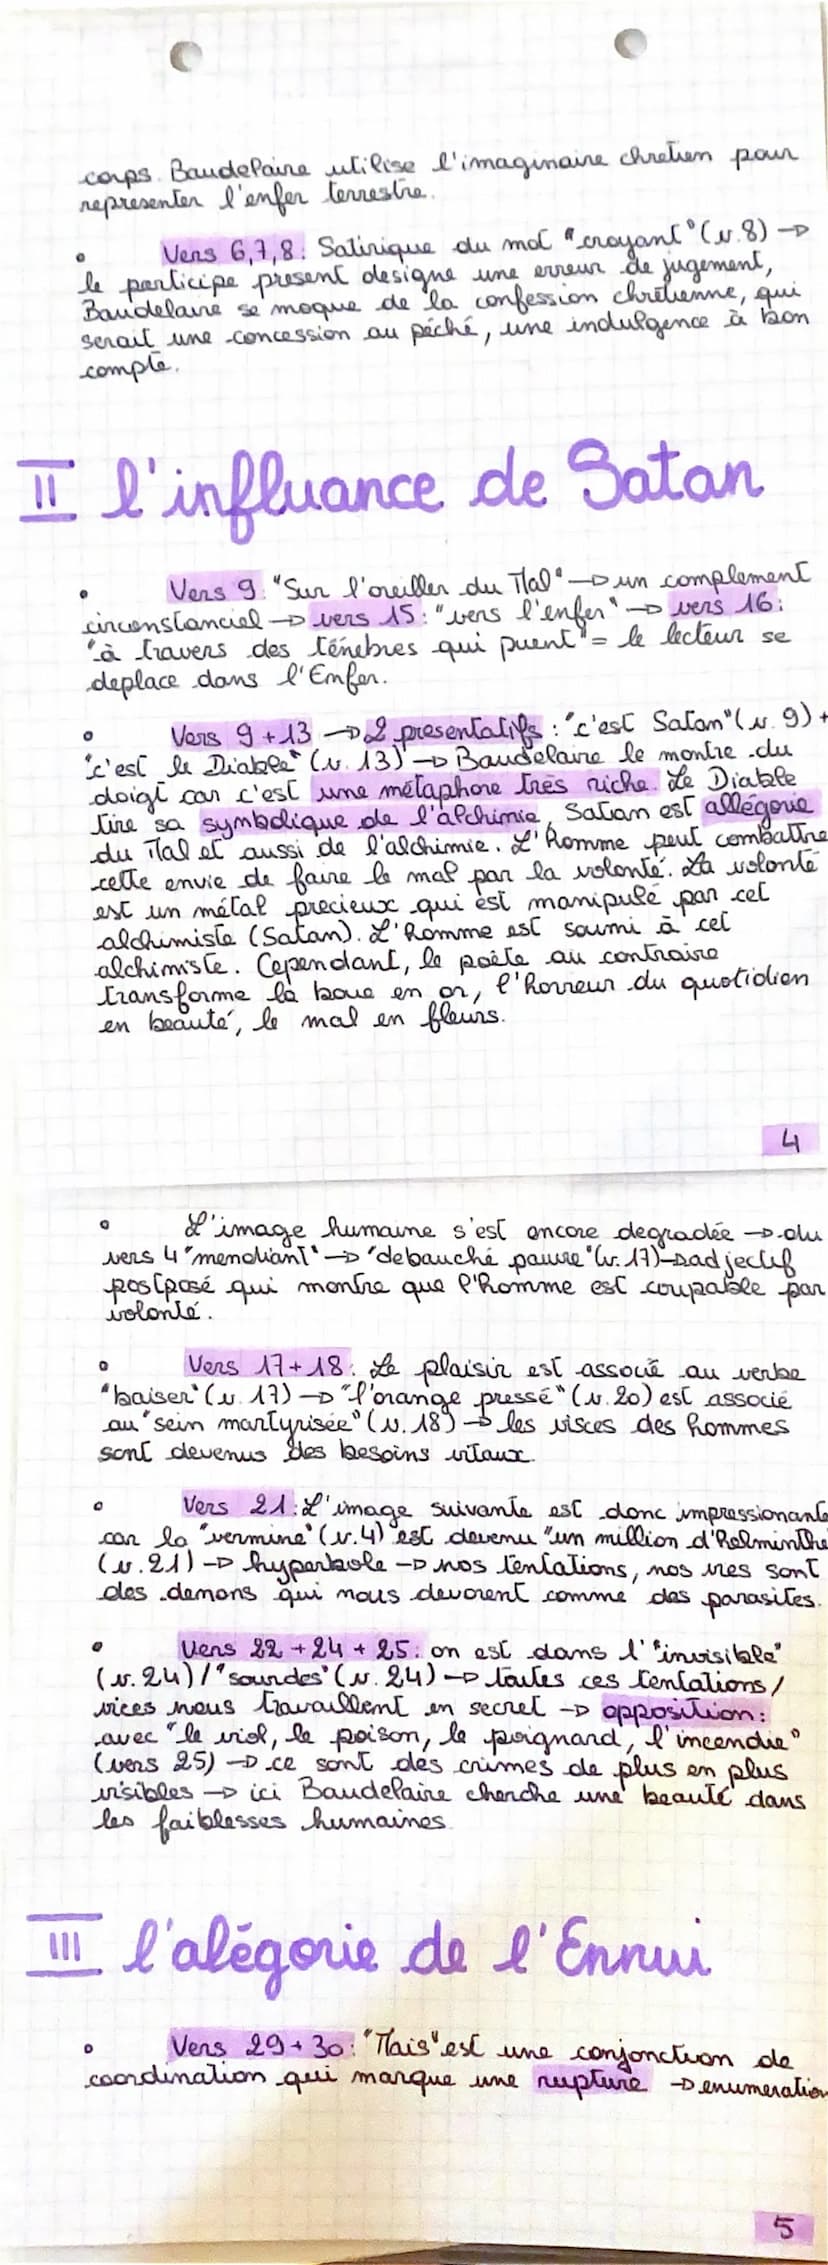 corps. Baudelaire utilise l'imaginaire chretien pour
representer l'enfer terrestre.
• Vers 6,7,8 : Satirique du mot "croyant" (v.8) →
le participe present designe une erreur de jugement,
Baudelaire se moque de la confession chrétienne, qui
serait une concession au péché, une indulgence à bon
compte.
II l'influance de Satan
• Vers 9 : "Sur l'oreiller du Mal" → un complement
circonstanciel → vers 15 : "vers l'enfer" → vers 16 :
"à travers des ténèbres qui puent" = le lecteur se
deplace dans l'Enfer.
• Vers 9 + 13 → 2 presentatifs : "c'est Satan" (v. 9) +
"c'est le Diable" (v. 13) → Baudelaire le montre du
doigt car c'est une métaphore très riche. Le Diable
tire sa symbolique de l'alchimie, Satan est allégorie
du Mal et aussi de l'alchimie. L'Homme peut combattre
cette envie de faire le mal par la volonté. La volonté
est un métal precieux qui est manipulé par cet
alchimiste (Satan). L'Homme est soumi à cet
alchimiste. Cependant, le poète au contraire
transforme la boue en or, l'horreur du quotidien
en beauté, le mal en fleurs.
4
• L'image humaine s'est encore degradée → du
vers 4 "mendiant" → "debauché pauvre" (v. 17) → adjectif
postposé qui montre que l'homme est coupable par
volonté.
• Vers 17 + 18 : Le plaisir est associé au verbe
"baiser" (v. 17) → "l'orange pressé" (v. 20) est associé
au "sein martyrisée" (v. 18) → les visces des hommes
sont devenus des besoins vitaux.
• Vers 21 : L'image suivante est donc impressionante
car la "vermine" (v.4) est devenu "un million d'helminthe
(v. 21) → hyperbole → nos tentations, nos vies sont
des demons qui nous devorent comme des parasites.
• Vers 22 + 24 + 25 : on est dans l'"invisible"
(v. 24) / "sourdes" (v. 24) → toutes ces tentations /
vices nous travaillent en secret → opposition :
avec "le viol, le poison, le poignard, l'incendie"
(vers 25) → ce sont des crimes de plus en plus
visibles → ici Baudelaire cherche une beauté dans
les faiblesses humaines.
III l'alégorie de l'Ennui
• Vers 29 + 30 : "Mais" est une conjonction de
coordination qui marque une rupture → enumeration
5